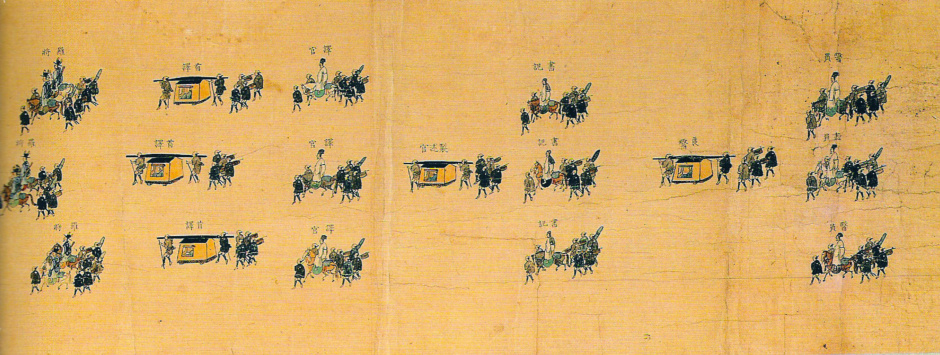 醫員
書記
譯官
首譯
羅將
醫員
良醫
書記
製述官
譯官
首譯
羅將
醫員
書記
譯官
首譯
羅將